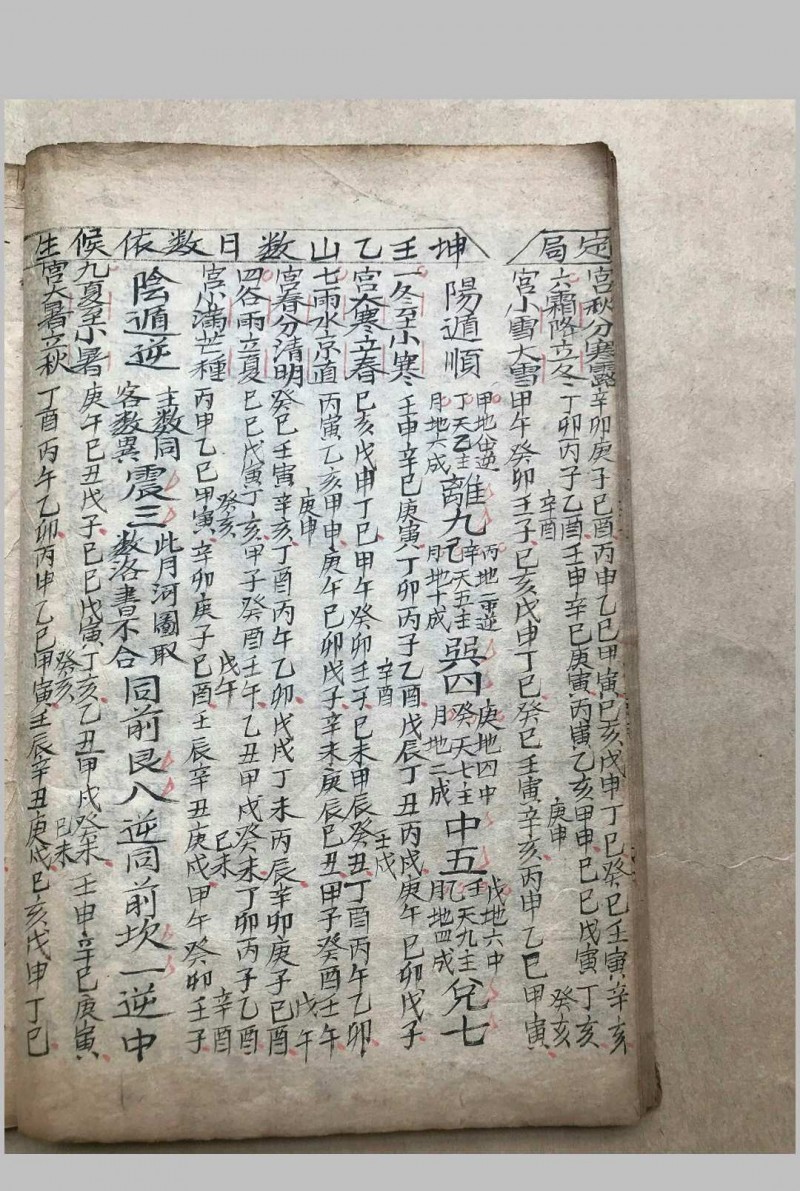 定局
坤壬乙山數日數依候生
宮秋分寒露辛卯庚子己酉丙申乙巳甲寅己亥戊申丁巳癸巳壬寅辛亥
六霜降立冬丁卯丙子乙酉壬申辛巳庚寅丙寅乙亥甲申己巳戊寅丁亥
辛酉 庚申 癸亥
宮小雪大雪甲午癸卯壬子己亥戊申丁巳癸巳壬寅辛亥丙申乙巳甲寅
陽遁順
甲地伏逆
丁天乙主
月地六成
離九己
丙地二重逆
辛天五主
月地十成
巽四
庚地四中
癸天七主
月地二成
中五
戊地六中
壬乙天九主
月地四成
兌七
一冬至小寒壬申辛巳庚寅丁卯丙子乙酉戊辰丁丑丙戌庚午己卯戊子
辛酉 壬戌
宮大寒立春己亥戊申丁巳甲午癸卯壬子己未甲辰癸丑丁酉丙午乙卯
七雨水京直丙寅乙亥甲申庚午己卯戊子辛未庚辰己丑甲子癸酉壬午
庚申 戊午
宮春分清明癸巳壬寅辛亥丁酉丙午乙卯戊戌丁未丙辰辛卯庚子己酉
四谷雨立夏己巳戊寅丁亥甲子癸酉壬午乙丑甲戌癸未丁卯丙子乙酉
癸亥 戊午 己未 辛酉
宮小滿芒種丙申乙巳甲寅辛卯庚子己酉壬辰辛丑庚戌甲午癸卯壬子
陰遁逆
主數同
客數異
震三
此月河圖取
數洛書不合
同前艮八逆同前坎一逆中
九夏至小暑庚午己丑戊子己巳戊寅丁亥乙丑甲戌癸未壬申辛巳庚寅
癸亥 己未
宮大暑立秋丁酉丙午乙卯丙申乙巳甲寅壬辰辛丑庚戌己亥戊申丁巳